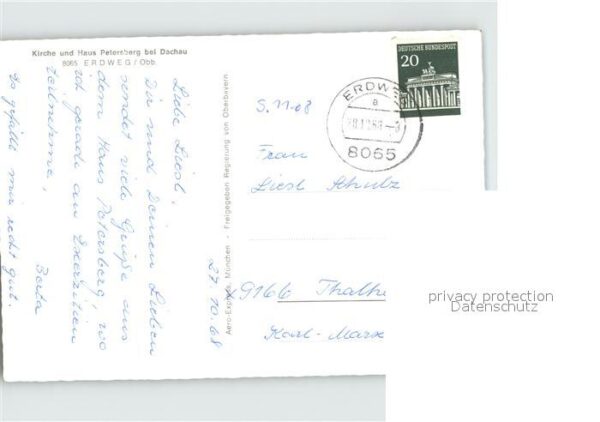 Kirche und Haus Petersberg bei Dachau
8065 ERDWEG / Obb.
Liebe Liesl,
Dir und Deinen Lieben
sendet viele Grüße aus
dem Haus Petersberg, wo
ich gerade an Exerzitien
teilnehme,
Es gefällt mir recht gut.
Berta
27.10.68
Aero-Express, München - Freigegeben Regierung von Oberbayern
DEUTSCHE BUNDESPOST
20
ERDWE
a
8065
5.11.68
Frau
Liesl Schulz
9166 Thalhe
Karl-Marx
privacy protection
Datenschutz